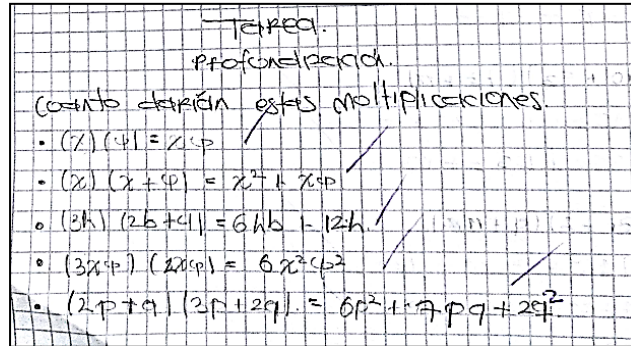 Tarea.
Profundización.
Cuanto darían estas moltiplicaciones.
• (x) (φ) = xφ
• (x) (x + φ) = x² + xφ
• (3h) (2b + 4) = 6hb + 12h.
• (3xφ) (2xφ) = 6x²φ²
• (2p + q) (3p + 2q) = 6p² + 7pq + 2q²